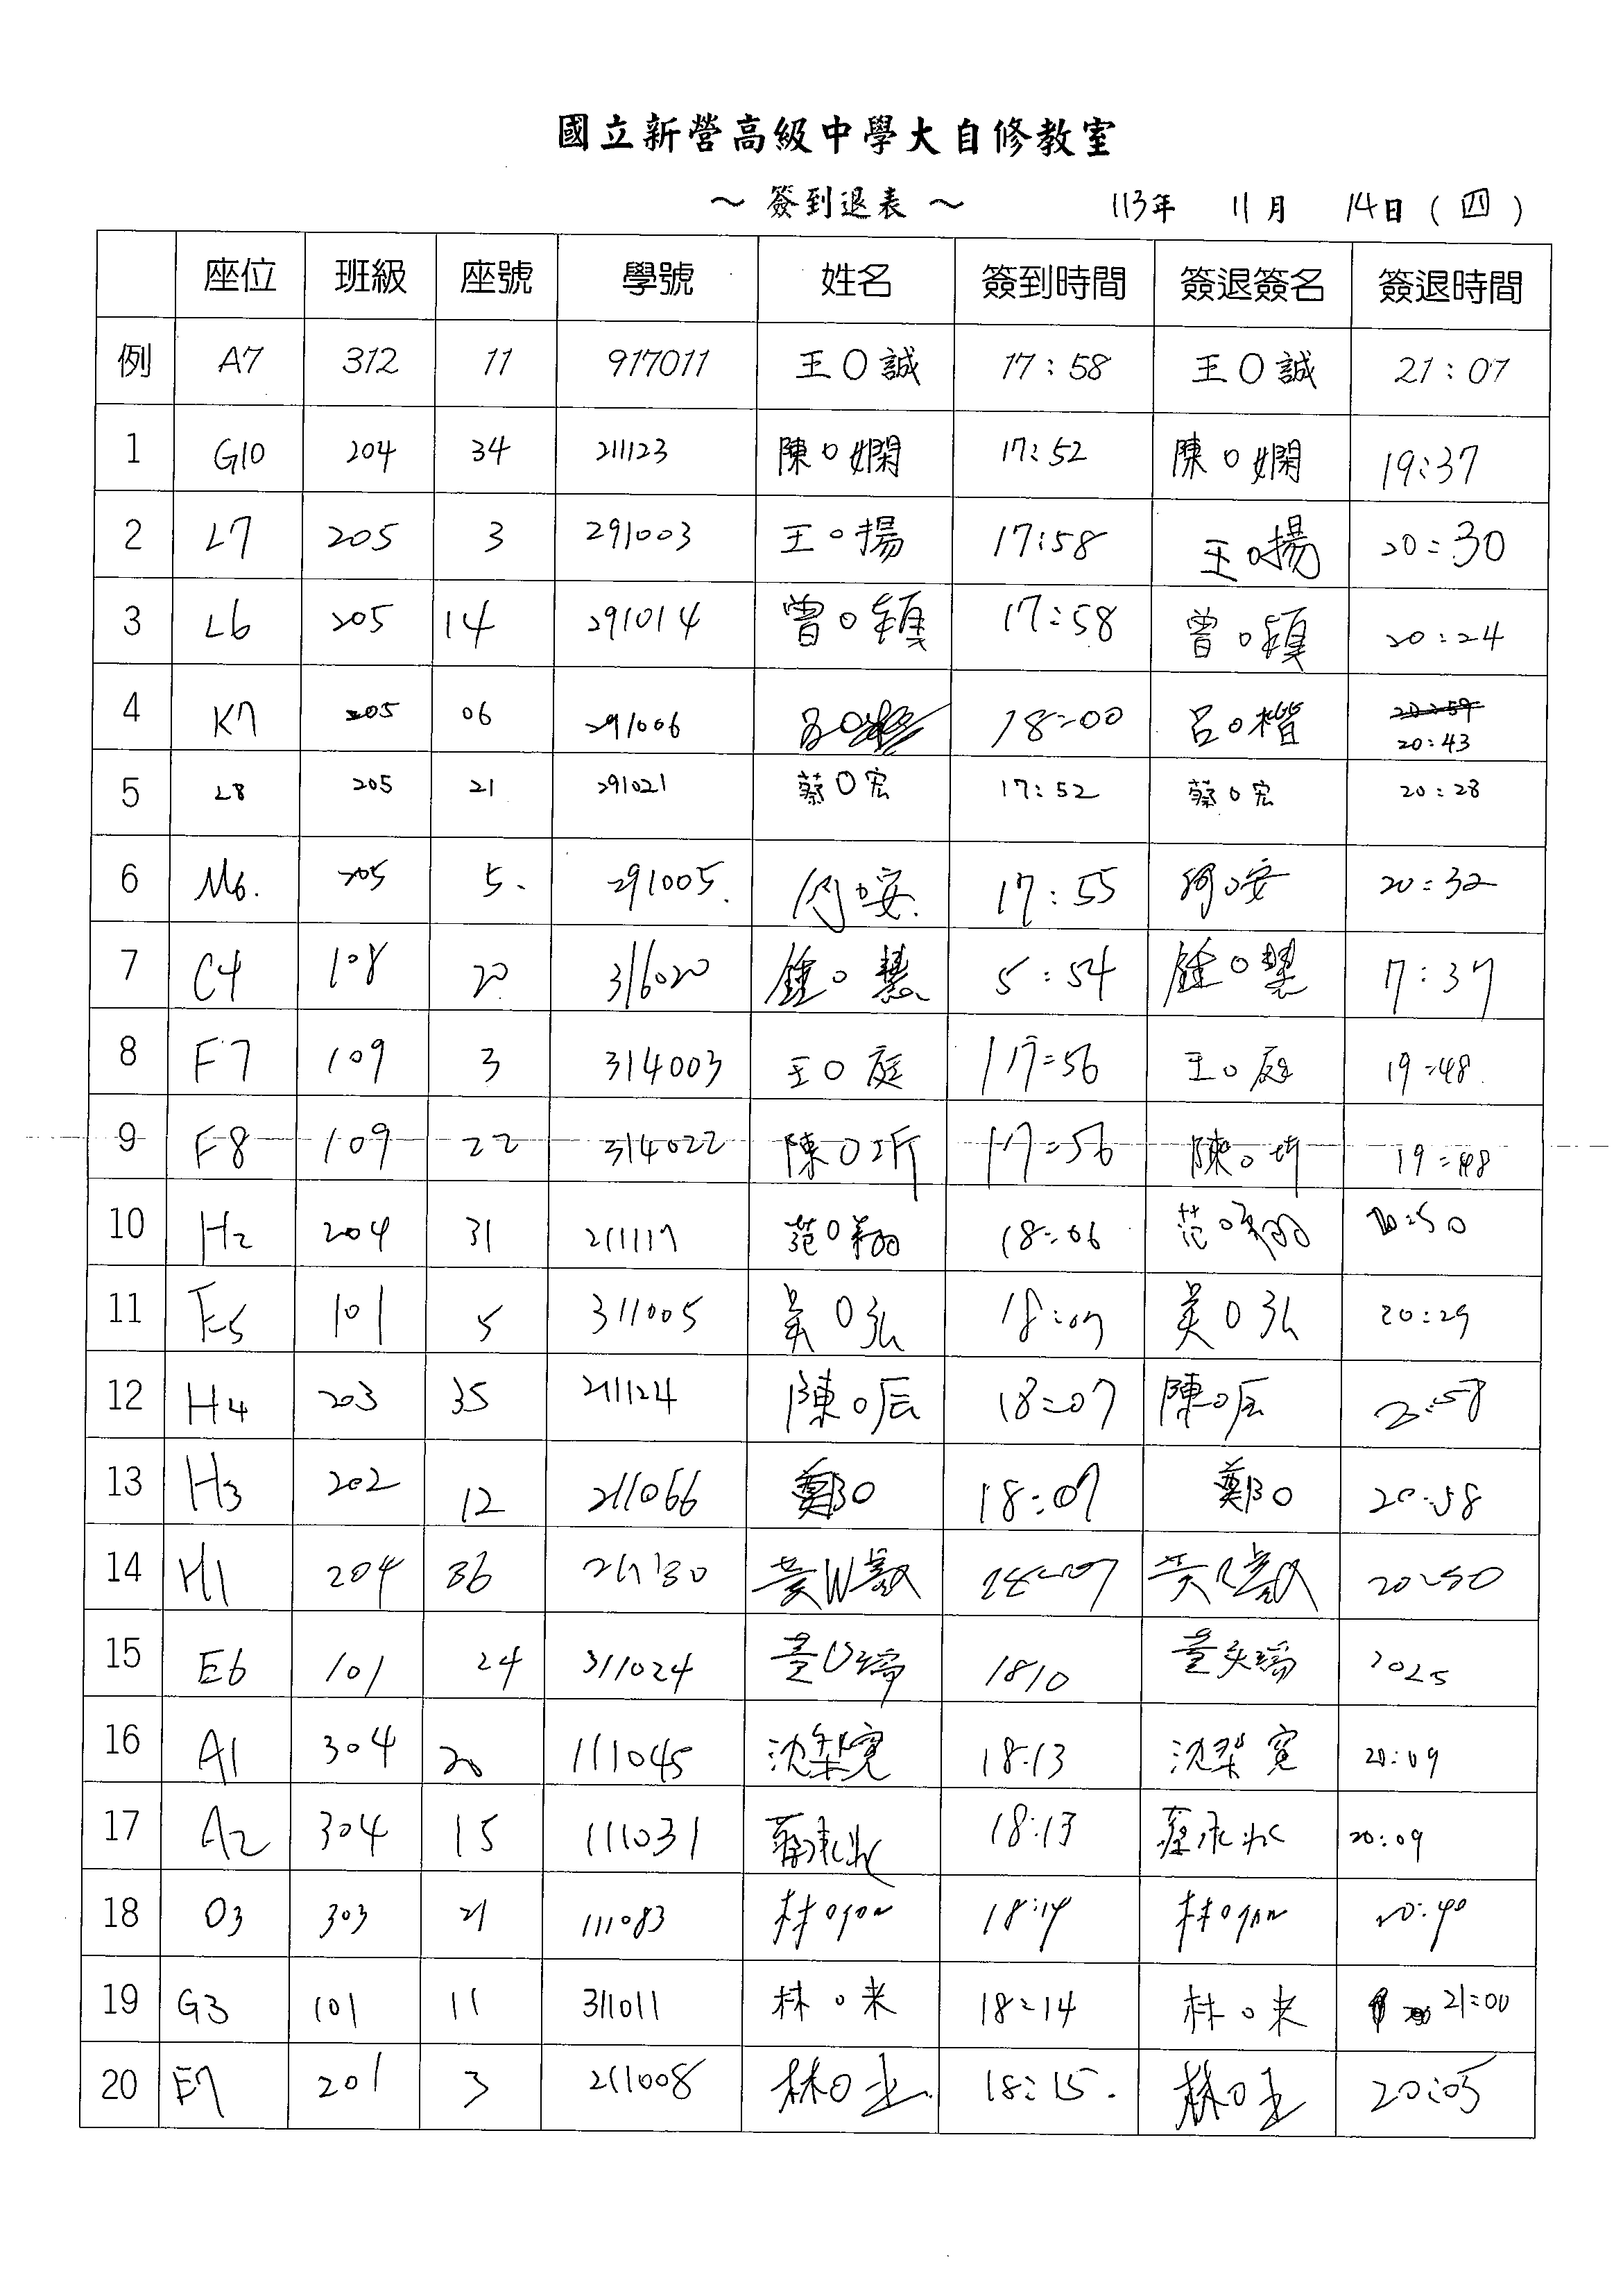 國立新營高級中學大自修教室
～ 簽到退表 ～ 113年 11月 14日(四)
座位 班級 座號 學號 姓名 簽到時間 簽退簽名 簽退時間
例 A7 312 11 917011 王O誠 17:58 王O誠 21:07
1 G10 204 34 211123 陳O嫻 17:52 陳O嫻 19:37
2 L7 205 3 291003 王O揚 17:58 王O揚 20:30
3 L6 205 14 291014 曾O 17:58 曾O 20:24
4 K7 205 06 291006 呂O 18:00 呂O楷 20:43
5 L8 205 21 291021 蔡O宏 17:52 蔡O宏 20:28
6 M6. 205 5. 291005. 何O安. 17:55 何O安 20:32
7 C4 108 20 316020 鍾O慧 5:54 鍾O慧 7:37
8 F7 109 3 314003 王O庭 17:56 王O庭 19:48
9 F8 109 22 314022 陳O圻 17:56 陳O圻 19:48
10 H2 204 31 211117 范O翔 18:06 范O翔 20:50
11 E5 101 5 311005 吳O弘 18:07 吳O弘 20:29
12 H4 203 35 211124 陳O辰 18:07 陳O辰 20:58
13 H3 202 12 211066 鄭O 18:07 鄭O 20:58
14 H1 204 36 211130 黃 18:07 黃 20:50
15 E6 101 24 311024 1810 2025
16 A1 304 20 111045 沈 寬 18:13 沈 寬 20:09
17 A2 304 15 111031 18:13 20:09
18 O3 303 21 111083 林O 18:14 林O 20:40
19 G3 101 11 311011 林O米 18:14 林O来 21:00
20 E7 201 3 211008 林O 18:15. 林O 20:05